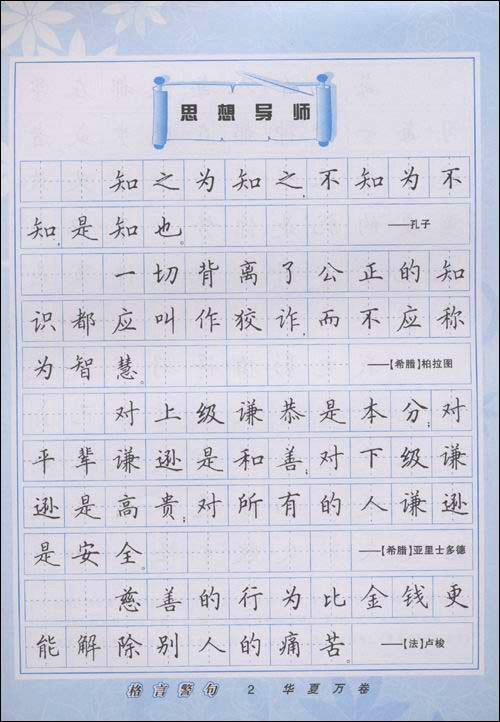 思想导师
知之为知之,不知为不
知,是知也。 ——孔子
一切背离了公正的知
识都应叫作狡诈,而不应称
为智慧。 ——【希腊】柏拉图
对上级谦恭是本分;对
平辈谦逊是和善;对下级谦
逊是高贵;对所有的人谦逊
是安全。 ——【希腊】亚里士多德
慈善的行为比金钱更
能解除别人的痛苦。 ——【法】卢梭
格言警句 2 华夏万卷